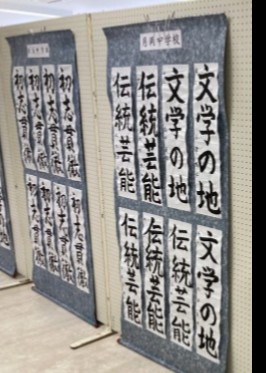 中学校
文学の地
文学の地
伝統芸能
伝統芸能
文学の地
伝統芸能
伝統芸能
伝統芸能
初志貫徹
初志貫徹
初志貫徹
初志貫徹
初志貫徹
初志貫徹
初志貫徹
初志貫徹